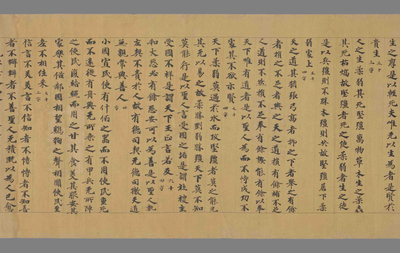 生之厚是以輕死夫唯无以生為者是賢於
貴生
人之生柔弱其死堅强萬物草木生之柔毳
其死枯槁故堅强者死之徒柔弱者生之徒
是以兵强則不勝木强則共故堅强居下柔
弱處上
天之道其猶張弓高者抑之下者舉之有餘
者損之不足者與之天之道損有餘補不足
人之道則不然損不足奉有餘孰能有餘以奉
天下唯有道者是以聖人為而不恃成功不
處其不欲示賢
天下柔弱莫過於水而攻堅强者莫之能先
其无以易之故柔勝剛弱勝强天下莫不知
莫能行是以聖人言受國之垢是謂社稷主
受國不祥是謂天下王正言若反
和大怨必有餘怨安可以為善是以聖人執
左契不責於人故有德司契无德司徹天道
无親常與善人
小國寡民使有什伯之器而不用使民重死
而不遠徙有舟轝无所乘之有甲兵无所陳
之使民復結繩而用之甘其食美其服安其
居樂其俗鄰國相望雞狗之聲相聞使民至
老不相往來
信言不美美言不信知者不博博者不知善
者不辯辯者不善聖人无積既以為人己愈